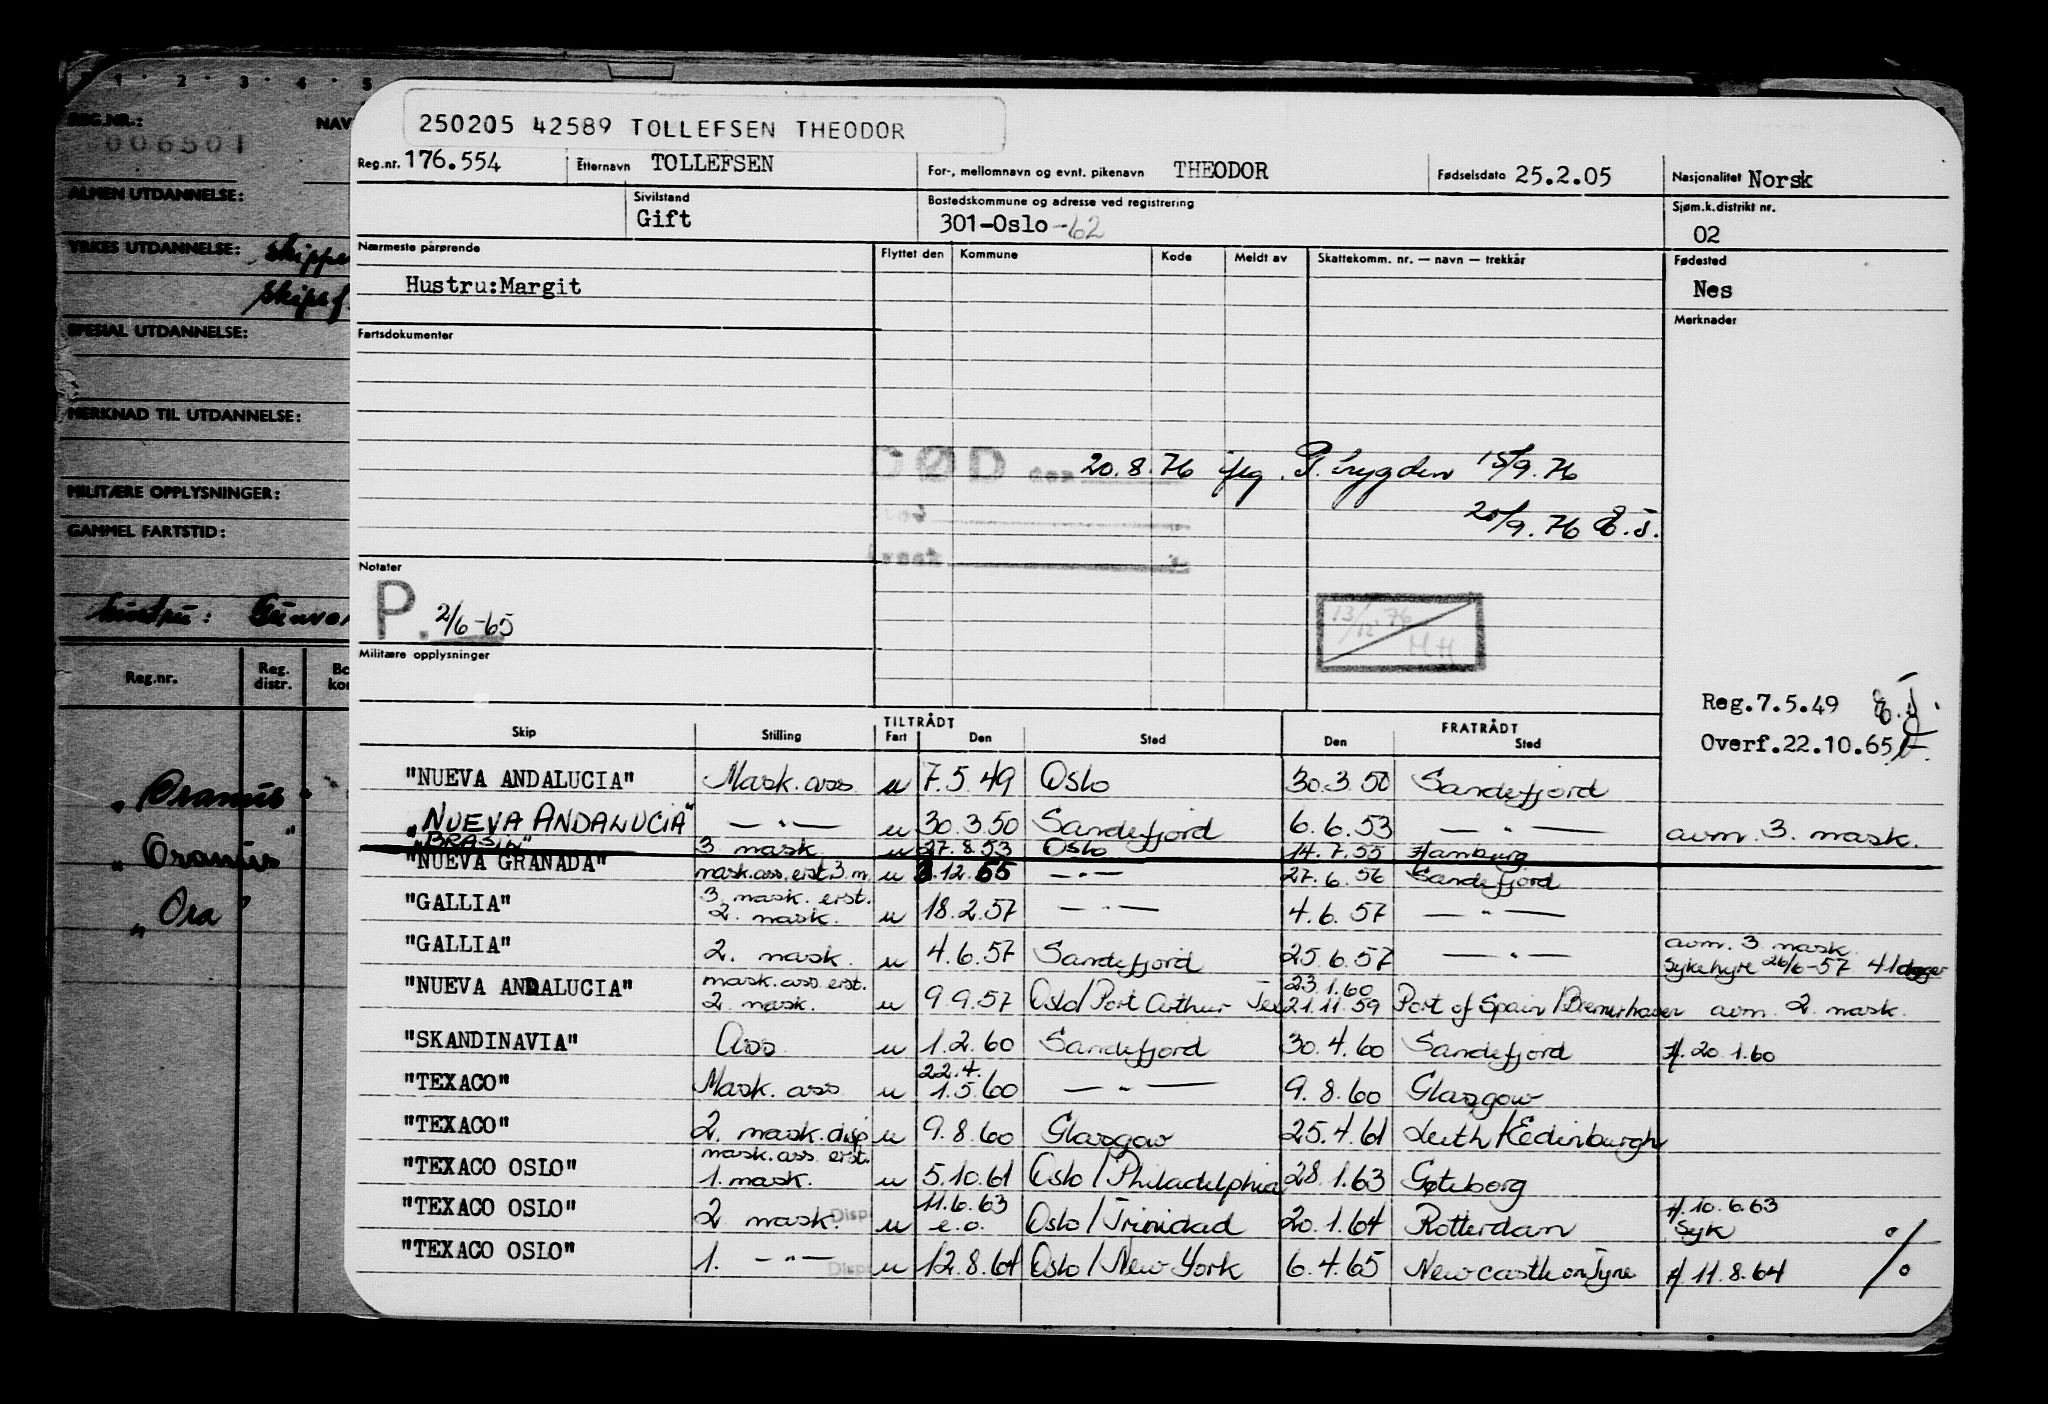 1 · 2 · 3 · 4 · 5
REG.NR.: NAV
006501
ALMEN UTDANNELSE:
YRKES UTDANNELSE: Skippe
Skipsf
SPESIAL UTDANNELSE:
MERKNAD TIL UTDANNELSE:
MILITÆRE OPPLYSNINGER:
GAMMEL FARTSTID:
hustru: Gunvor
Reg.nr. Reg. distr. Bo kor
"Oranius"
"Oranius"
"Ora"
250205 42589 TOLLEFSEN THEODOR
Reg.nr. 176.554 Etternavn TOLLEFSEN For-, mellomnavn og evnt. pikenavn THEODOR Fødselsdato 25.2.05 Nasjonalitet Norsk
Sivilstand Gift Bostedskommune og adresse ved registrering 301-Oslo -62 Sjøm.k.distrikt nr. 02
Nærmeste pårørende Flyttet den Kommune Kode Meldt av Skattekomm. nr. — navn — trekkår Fødested
Hustru:Margit Nes
Fartsdokumenter Merknader
DØD den 20.8.76 flg. P.trygden 15/9.76
20/9.76 E.J.
Årsak
Notater
P. 2/6-65
13/12 76 HH
Militære opplysninger
Reg.7.5.49 E.J.
Overf.22.10.65
TILTRÅDT FRATRÅDT
Skip Stilling Fart Den Sted Den Sted
"NUEVA ANDALUCIA" Mask.ass u 7.5.49 Oslo 30.3.50 Sandefjord
"NUEVA ANDALUCIA" — " — u 30.3.50 Sandefjord 6.6.53 — " — avm. 3. mask.
"BRASIL" 3 mask. u 27.8.53 Oslo 14.7.55 Hamburg
"NUEVA GRANADA" mask.ass.erst.3.m. u 3.12.55 — " — 27.6.56 Sandefjord
"GALLIA" 3 mask. erst. 2. mask. u 18.2.57 — " — 4.6.57 — " —
"GALLIA" 2. mask. u 4.6.57 Sandefjord 25.6.57 — " — avm. 3 mask. Sykehyre 26/6-57 41 dager
"NUEVA ANDALUCIA" mask.ass.erst. 2. mask. u 9.9.57 Oslo/Port Arthur Tex 23.1.60 21.11.59 Port of Spain/Bremerhaven avm. 2. mask.
"SKANDINAVIA" Ass u 1.2.60 Sandefjord 30.4.60 Sandefjord A. 20.1.60
"TEXACO" Mask.ass u 22.4. 1.5.60 — " — 9.8.60 Glasgow
"TEXACO" 2. mask.disp u 9.8.60 Glasgow 25.4.61 Leith/Edinburgh
"TEXACO OSLO" mask.ass erst. 1.mask. u 5.10.61 Oslo/Philadelphia 28.1.63 Gøteborg
"TEXACO OSLO" 2 mask. Disp u 11.6.63 e.o. Oslo/Trinidad 20.1.64 Rotterdam A.10.6.63 Syk
"TEXACO OSLO" 1. — " — Disp u 12.8.64 Oslo/New York 6.4.65 Newcastle on Tyne A 11.8.64 %